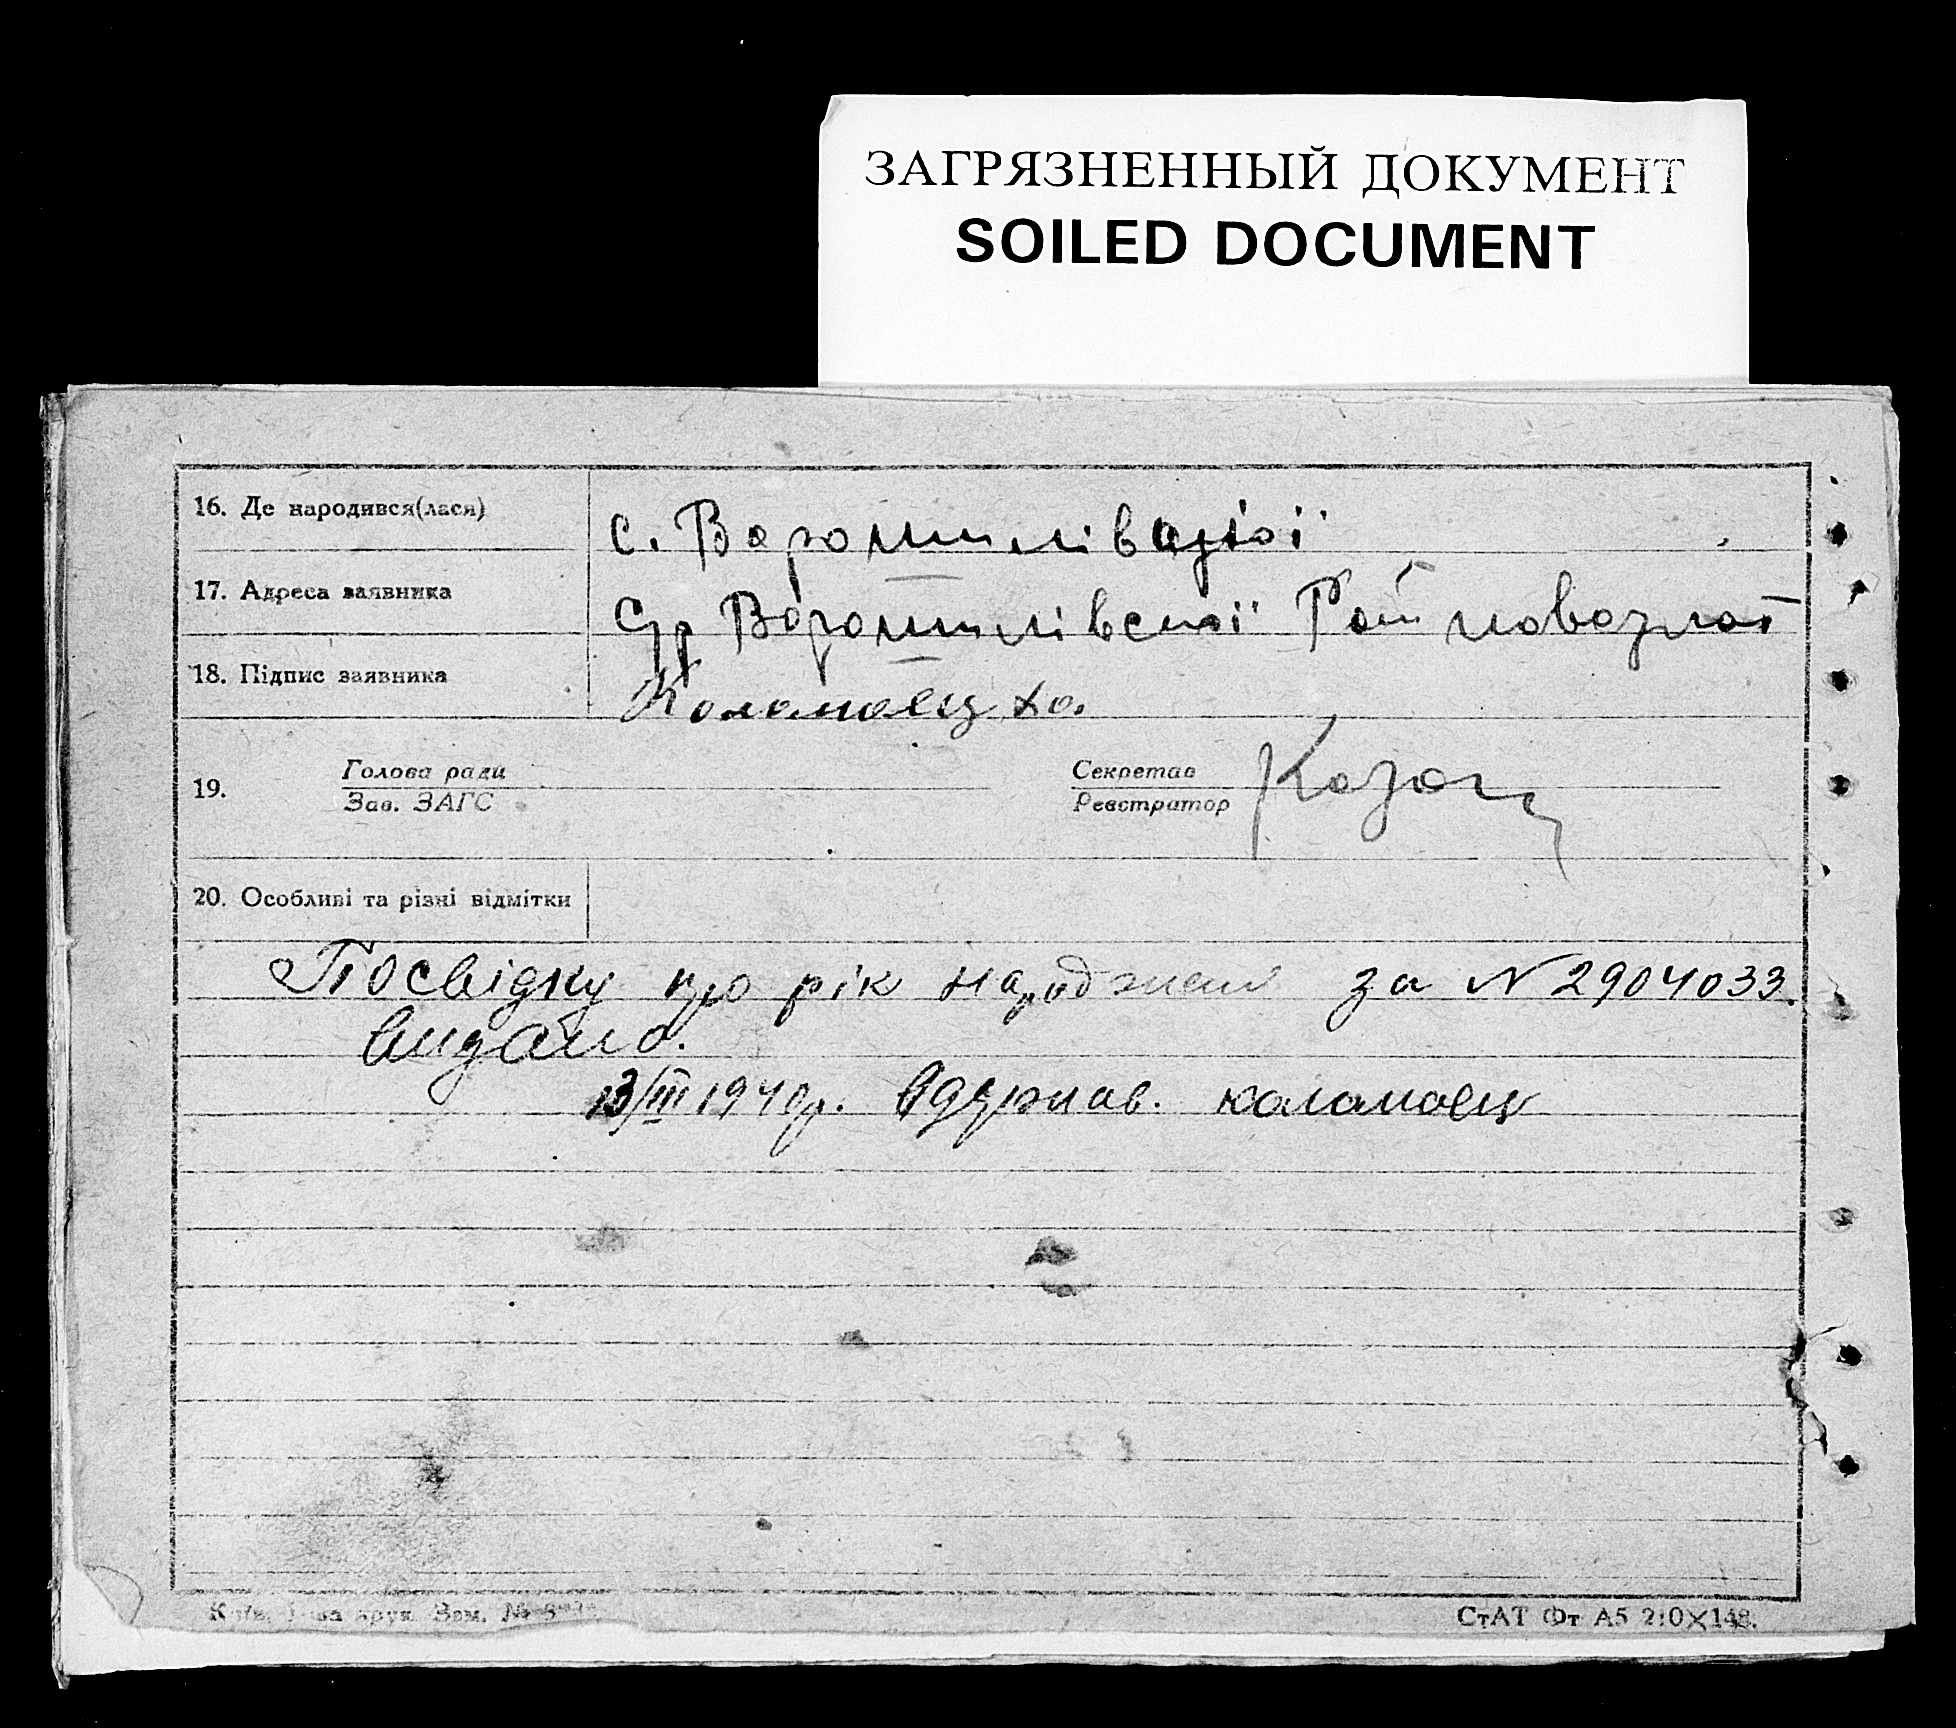 ЗАГРЯЗНЕННЫЙ ДОКУМЕНТ
SOILED DOCUMENT
16. Де народився(лася) с.
17. Адреса заявника Ворошилівської Рай
18. Підпис заявника Коломоец
19. Голова ради Секретар
Зав. ЗАГС Реєстратор
20. Особливі та різні відмітки
Посвідку про рік народження за N 2904033.
видано.
13/III 1940р. Одержав. коломоец
Київ, друк. Зам. №
СтАТ Фт А5 210×148.